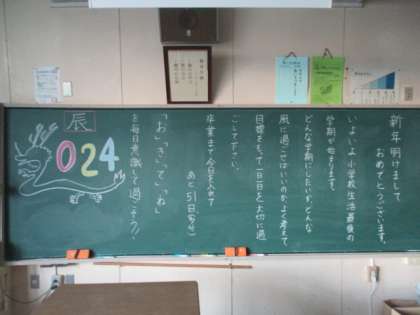 新年明けまして
おめでとうございます。
いよいよ小学校生活最後の
学期が始まります。
どんな学期にしたいか、どんな
風に過ごせばいいのか、よく考えて
目標をもって一日一日を大切に過
ごして下さい。
卒業まで今日を入れて
あと51日(多分)
「お」「き」「て」「ね」
を毎日意識して過ごそう!
辰
024